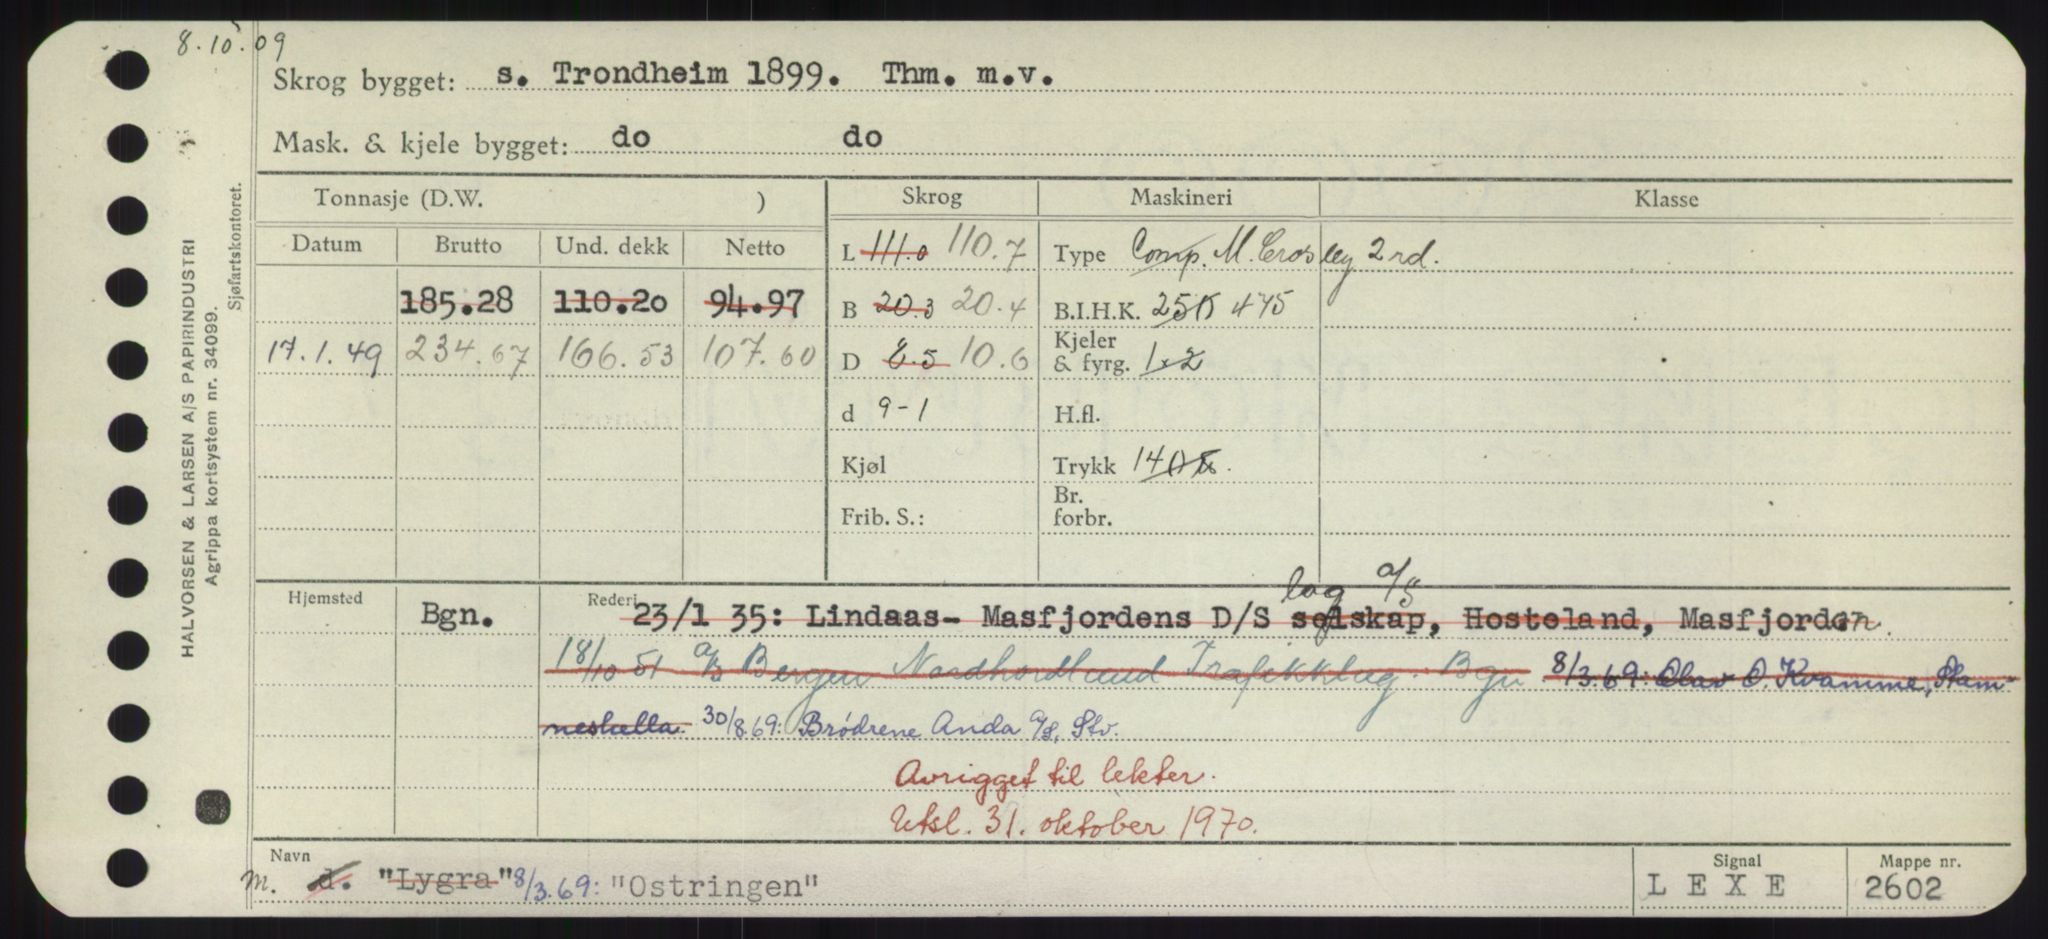 8.10.09
Skrog bygget: s. Trondheim 1899. Thm. m.v.
Mask. & kjele bygget: do do
Tonnasje (D.W. ) Skrog Maskineri Klasse
Datum Brutto Und. dekk Netto
L 111.0 110.7 Type Comp. M. Crosley 2 rd.
185.28 110.20 94.97 B 20.3 20.4 B.I.H.K. 250 475
17.1.49 234.67 166.53 107.60 D 8.5 10.6 Kjeler & fyrg. 1x2
d 9-1 H.fl.
Kjøl Trykk 140
Frib. S.: Br. forbr.
lag a/s
Hjemsted Bgn. Rederi 23/1 35: Lindaas- Masfjordens D/S selskap, Hosteland, Masfjorden.
18/10 51 a/s Bergen Nordhordland Trafikklag. Bgn 8/3.69: Olav O. Kvamme, Stam-
neshella. 30/8.69: Brødrene Anda a/s, Stv.
Avrigget til lekter.
Utsl. 31. oktober 1970.
Navn Signal Mappe nr.
m. d. "Lygra" 8/3.69: "Ostringen" LEXE 2602
HALVORSEN & LARSEN A/S PAPIRINDUSTRI
Agrippa kortsystem nr. 34099.
Sjøfartskontoret.